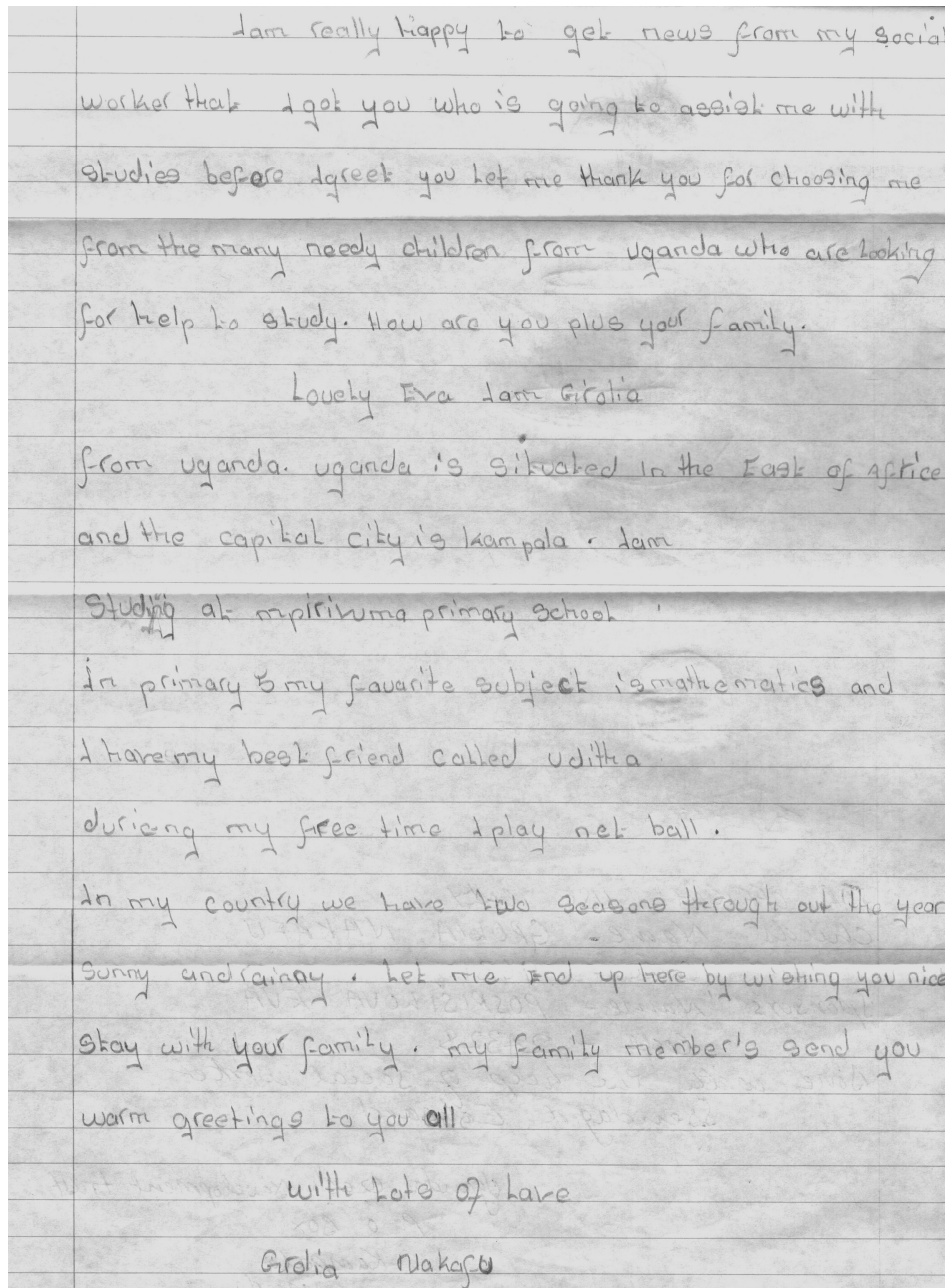 Iam really happy to get news from my social
worker that I got you who is going to assist me with
studies before Igreet you Let me thank you for choosing me
from the many needy children from uganda who are Looking
for help to study. How are you plus your family.
Lovely Eva Iam Grolia
from uganda. uganda is situated In the East of Africe
and the capital city is kampala. Iam
Studing at mpirivuma primary school
In primary 5 my favarite subject is mathematics and
I have my best friend called uditha
duricng my free time Iplay net ball.
In my country we have two seasons through out the year
Sunny and rainny. Let me End up here by wishing you nice
stay with your family. my family member's send you
warm greetings to you all
with Lots of Lave
Grolia